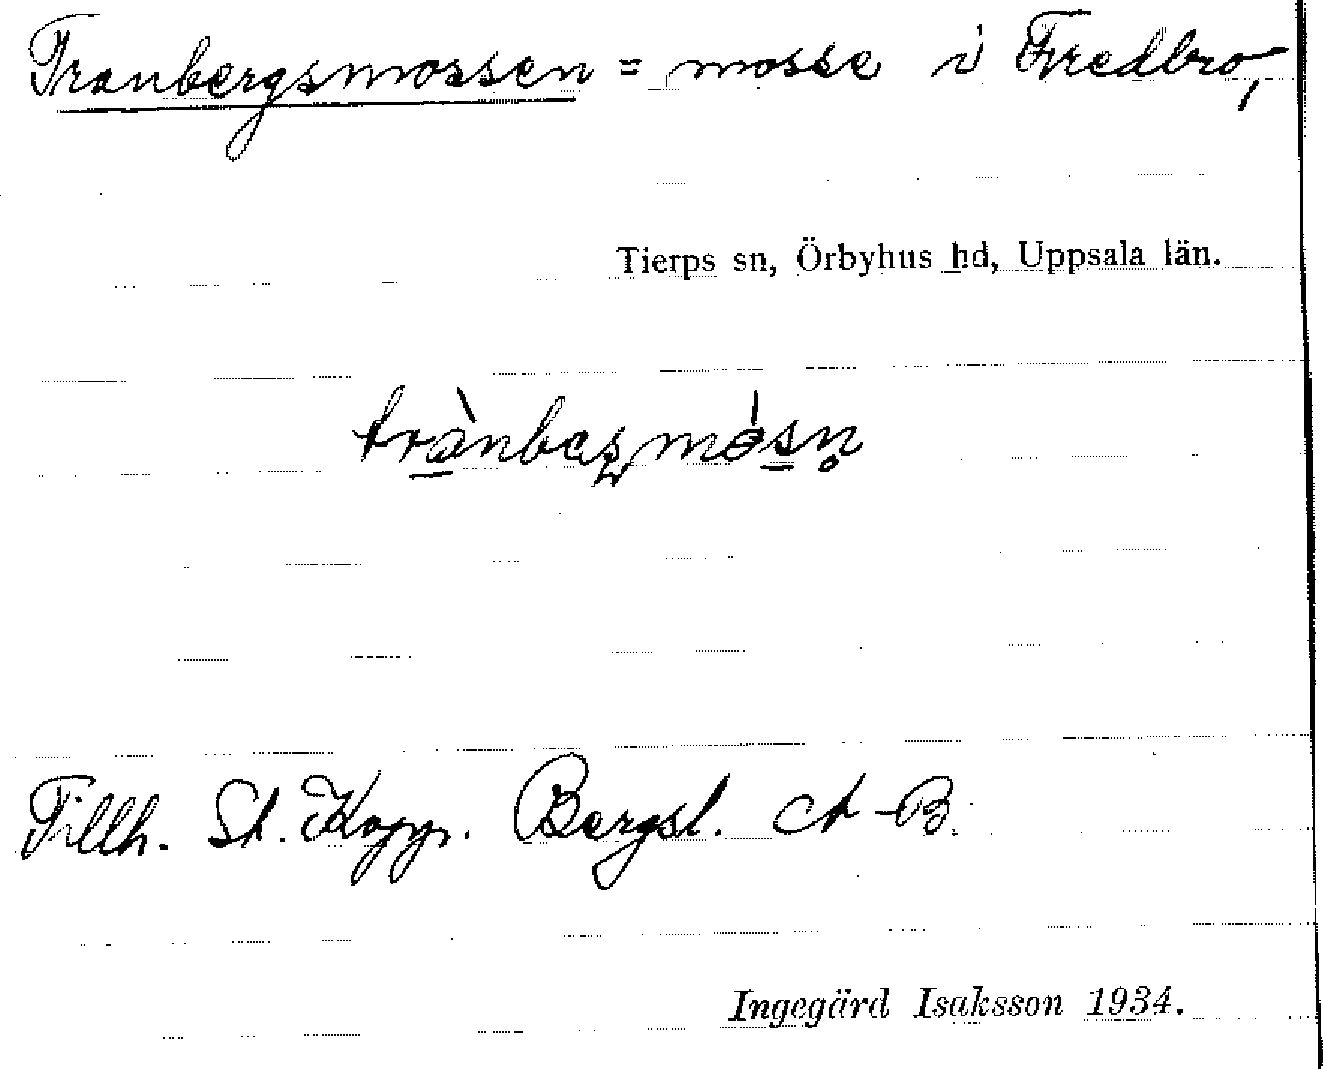 Tranbergsmossen = mosse i Fredbro,
Tierps sn, Örbyhus hd, Uppsala län.
Tillh. St. Kopp. Bergsl. A-B.
Ingegärd Isaksson 1934.